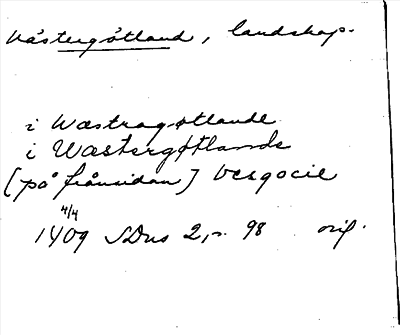 Västergötland, landskap.
i Wæstragøtlande
i Wæstergøtlande
[på frånsidan] Vesgocie
4/4
1409 SDns 2, s. 98 orig.